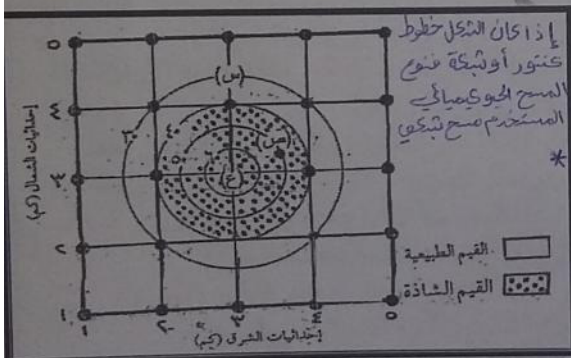 إذا كان الشكل خطوط
كنتور أو شبكة فنوع
المسح الجيوكيميائي
المستخدم مسح شبكي
*
القيم الطبيعية
القيم الشاذة
إحداثيات الشمال (كم)
إحداثيات الشرق (كم)
(س)
(ص)
(ع)
٣٠
٤٠
٥٠
٥
٤
٣
٢
١
١
٢
٣
٤
٥